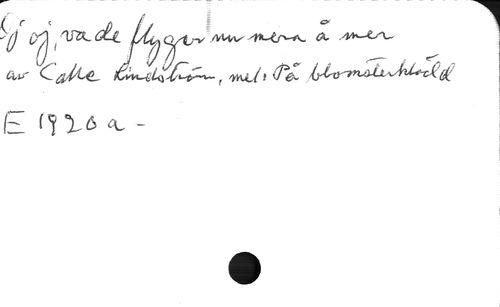 Oj oj, va de flyger nu mera å mer
av Calle Lindström, mel: På blomsterklädd
E 1920 a -